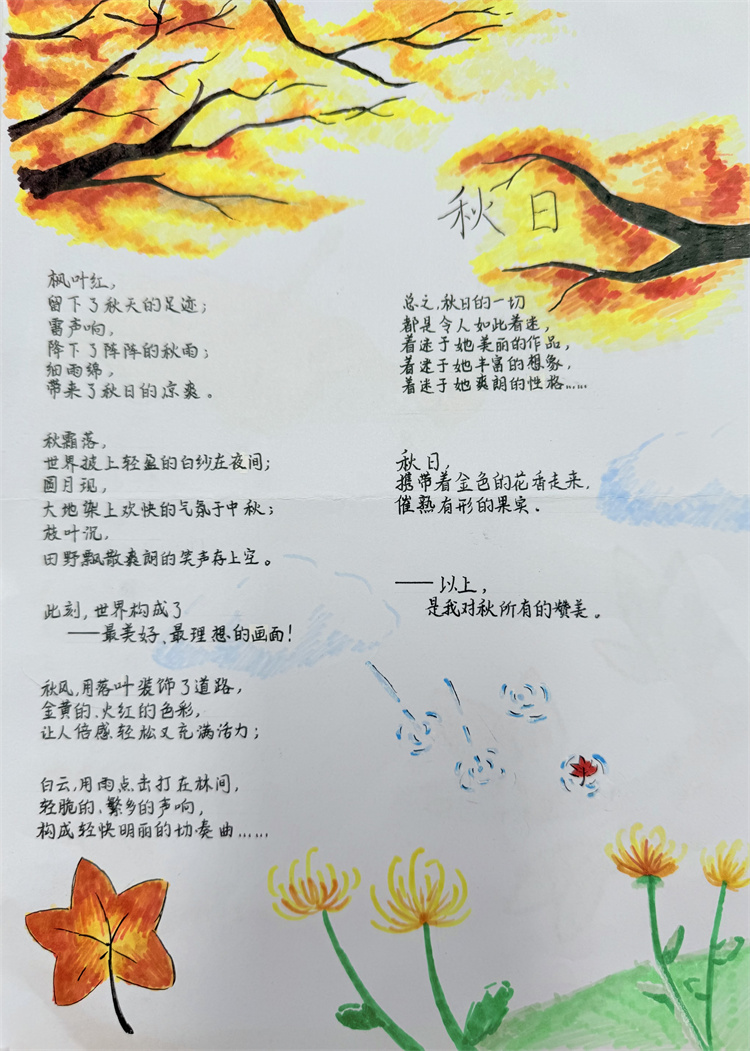 秋日
枫叶红，
留下了秋天的足迹；
雷声响，
降下了阵阵的秋雨；
细雨绵，
带来了秋日的凉爽。
秋霜落，
世界披上轻盈的白纱在夜间；
圆月现，
大地染上欢快的气氛于中秋；
枝叶沉，
田野飘散爽朗的笑声存上空。
此刻，世界构成了
——最美好、最理想的画面！
秋风，用落叶装饰了道路，
金黄的、火红的色彩，
让人倍感轻松又充满活力；
白云，用雨点击打在林间，
轻脆的、繁多的声响，
构成轻快明丽的协奏曲……
总之，秋日的一切
都是令人如此着迷，
着迷于她美丽的作品，
着迷于她丰富的想象，
着迷于她爽朗的性格……
秋日，
携带着金色的花香走来，
催熟有形的果实．
——以上，
是我对秋所有的赞美。